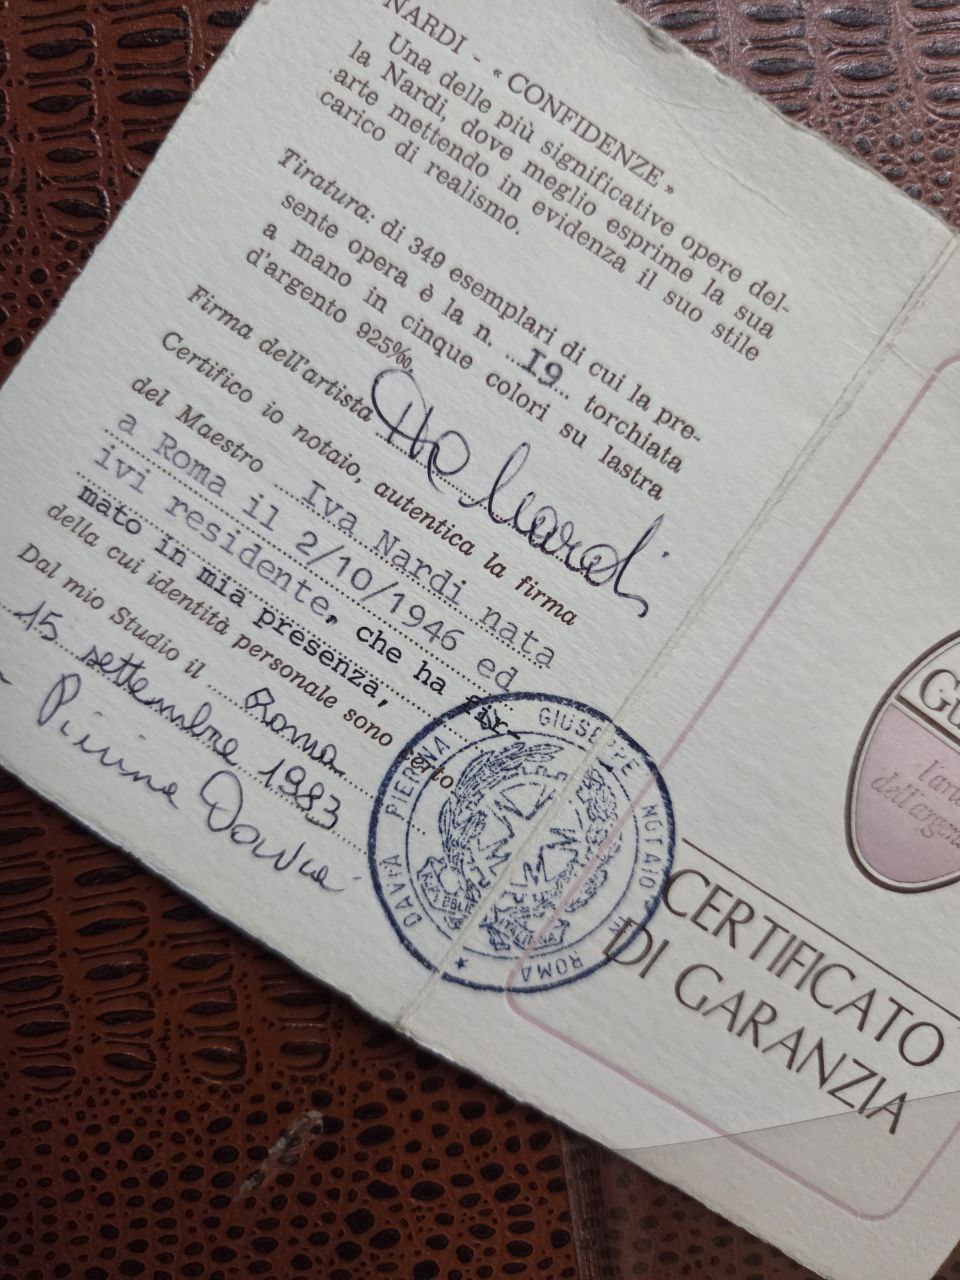 NARDI - « CONFIDENZE »
Una delle più significative opere del-
la Nardi, dove meglio esprime la sua
arte mettendo in evidenza il suo stile
carico di realismo.
Tiratura: di 349 esemplari di cui la pre-
sente opera è la n. ...I9... torchiata
a mano in cinque colori su lastra
d'argento 925‰.
Firma dell'artista
Certifico io notaio, autentica la firma
del Maestro Iva Nardi nata
a Roma il 2/10/1946 ed
ivi residente, che ha fir-
mato in mia presenza,
della cui identità personale sono certo
Dal mio Studio il Roma
15 settembre 1983
DAVIA PIERINA GIUSEPPE NOTAIO
ROMA
REPUBBLICA ITALIANA
GU
l'arte
dell'argento
CERTIFICATO
DI GARANZIA